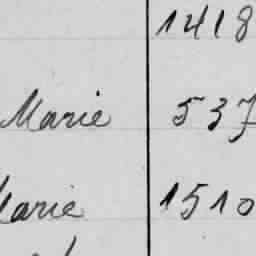 1418
Marie 537
Marie 1510